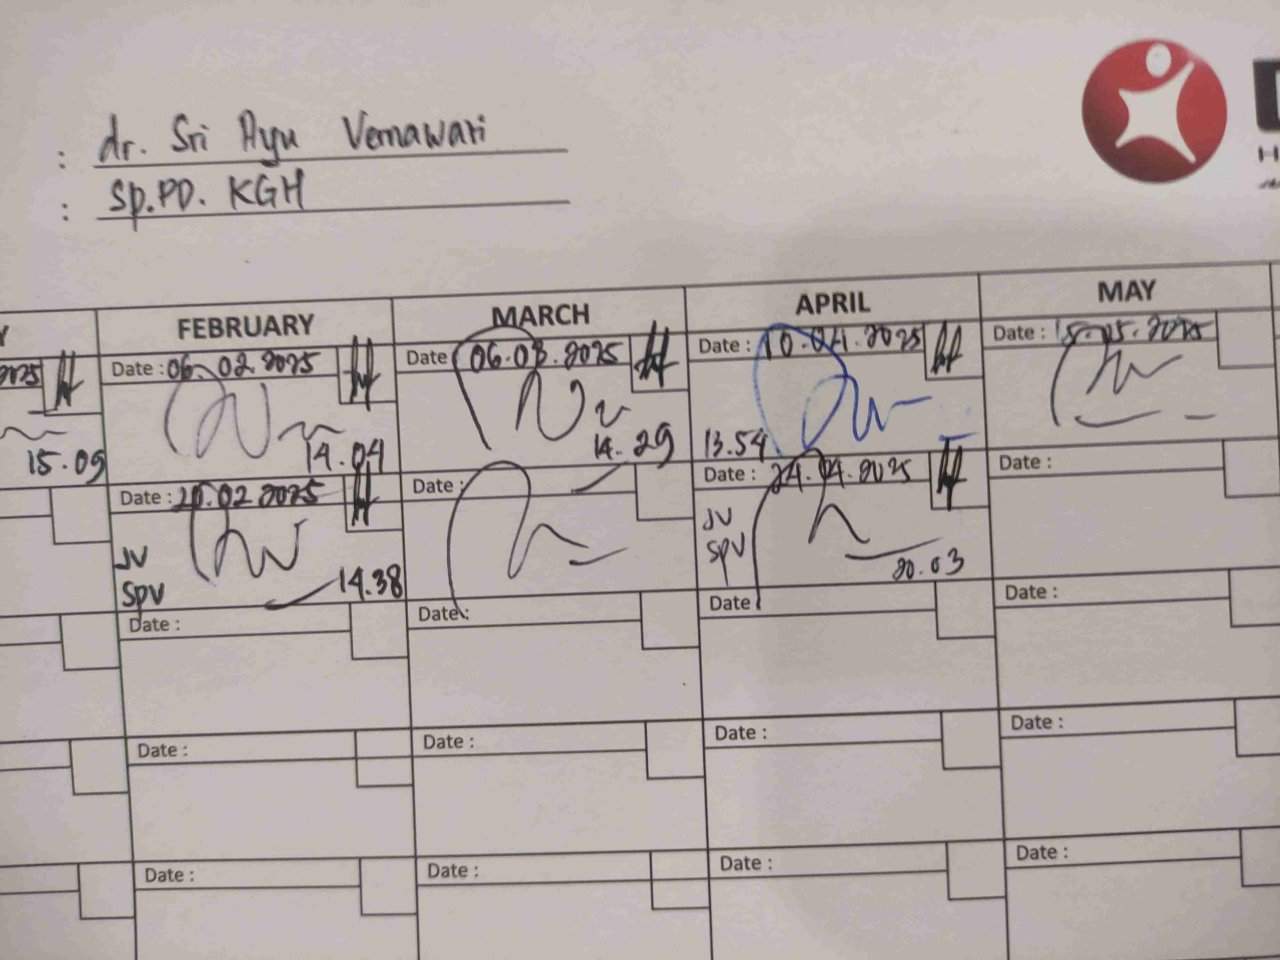 : dr. Sri Ayu Vernawari
: Sp.PD. KGH
FEBRUARY MARCH APRIL MAY
2025 Date : 06.02.2025 Date 06.03.2025 Date : 10.04.2025 Date : 15.05.2025
15.09 14.04 14.29 13.54
Date : 20.02 2025 Date : Date : 24.04.2025 Date :
JV JV
SPV 14.38 SPV 20.03
Date : Date : Date : Date :
Date : Date : Date : Date :
Date : Date : Date : Date :